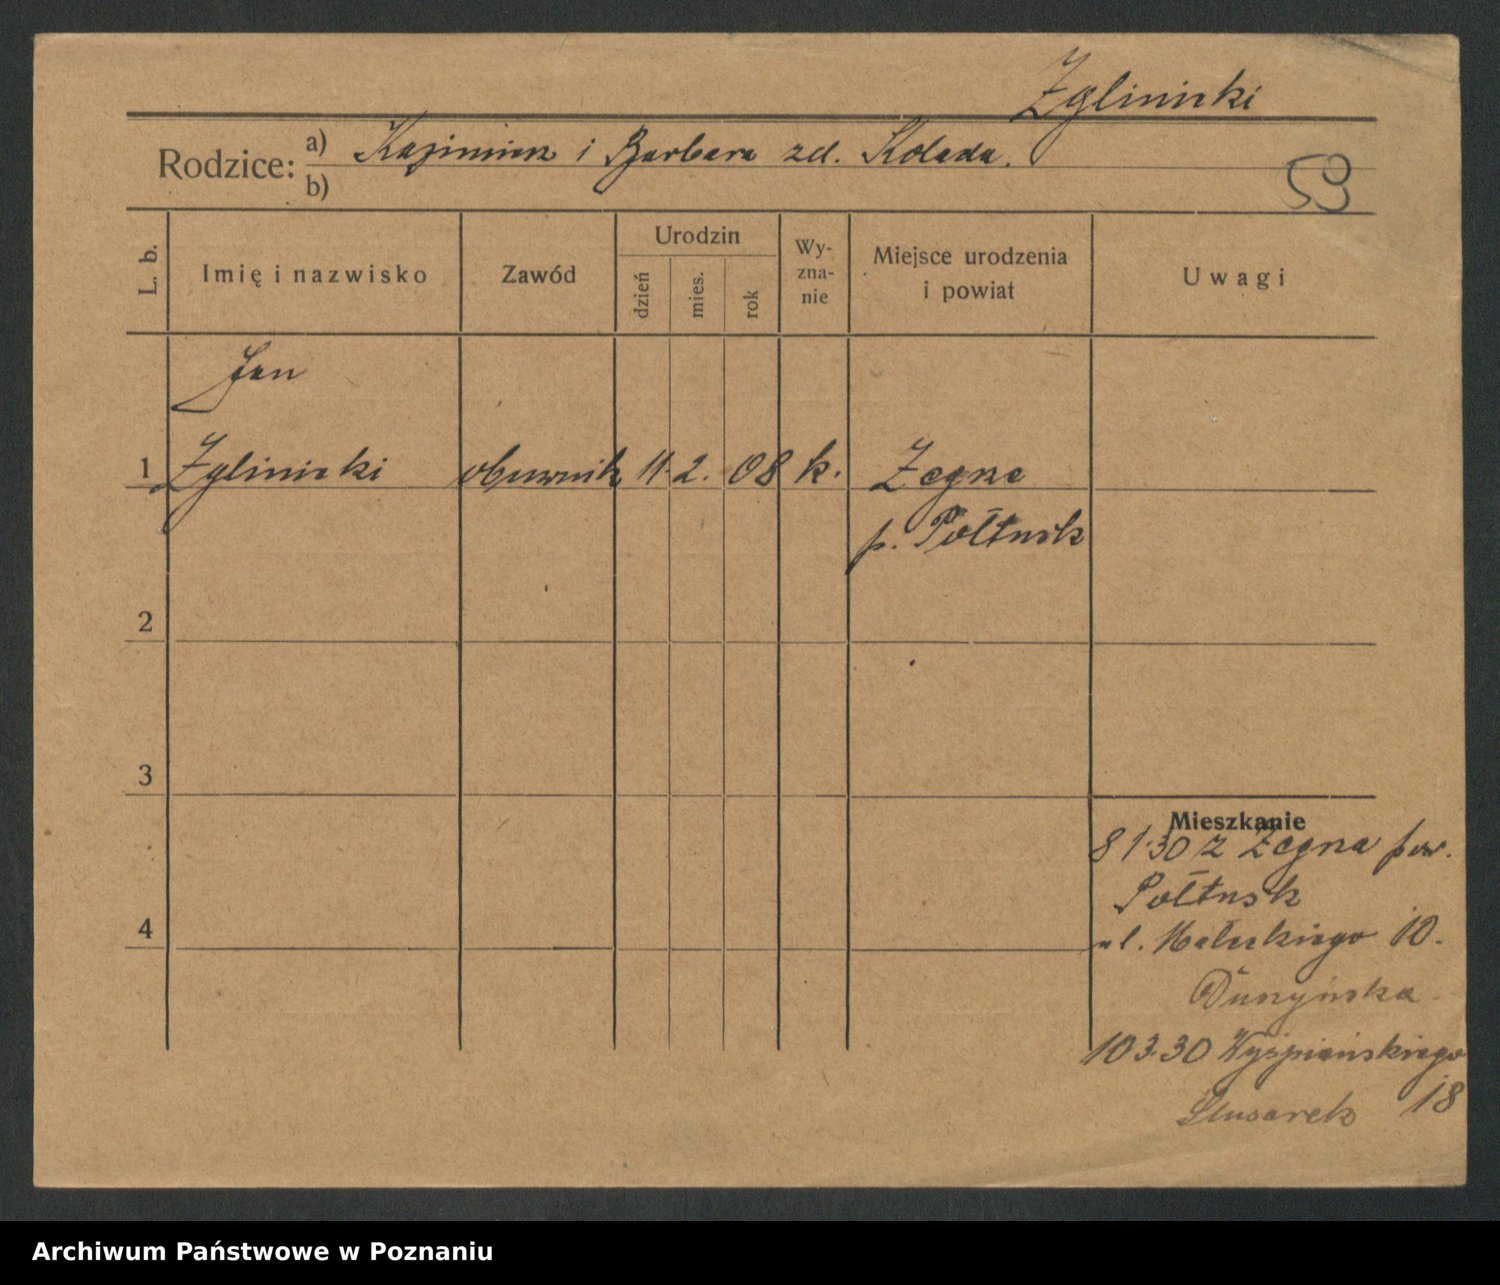 Zglinicki
Rodzice: a) Kazimierz i Barbara zd. Kolada.
b)
59
L. b.
Imię i nazwisko
Zawód
Urodzin
dzień
mies.
rok
Wy-
zna-
nie
Miejsce urodzenia
i powiat
Uwagi
Jan
1 Zglinicki obuwnik 11. 2. 08 k. Zegrze
p. Połtusk
2
3
Mieszkanie
8 1.30 z Zegrza pow.
Połtusk
4
ul. Małeckiego 10.
Duszyńska
10 3.30 Wyśpiańskiego
18
Ślusarek
Archiwum Państwowe w Poznaniu